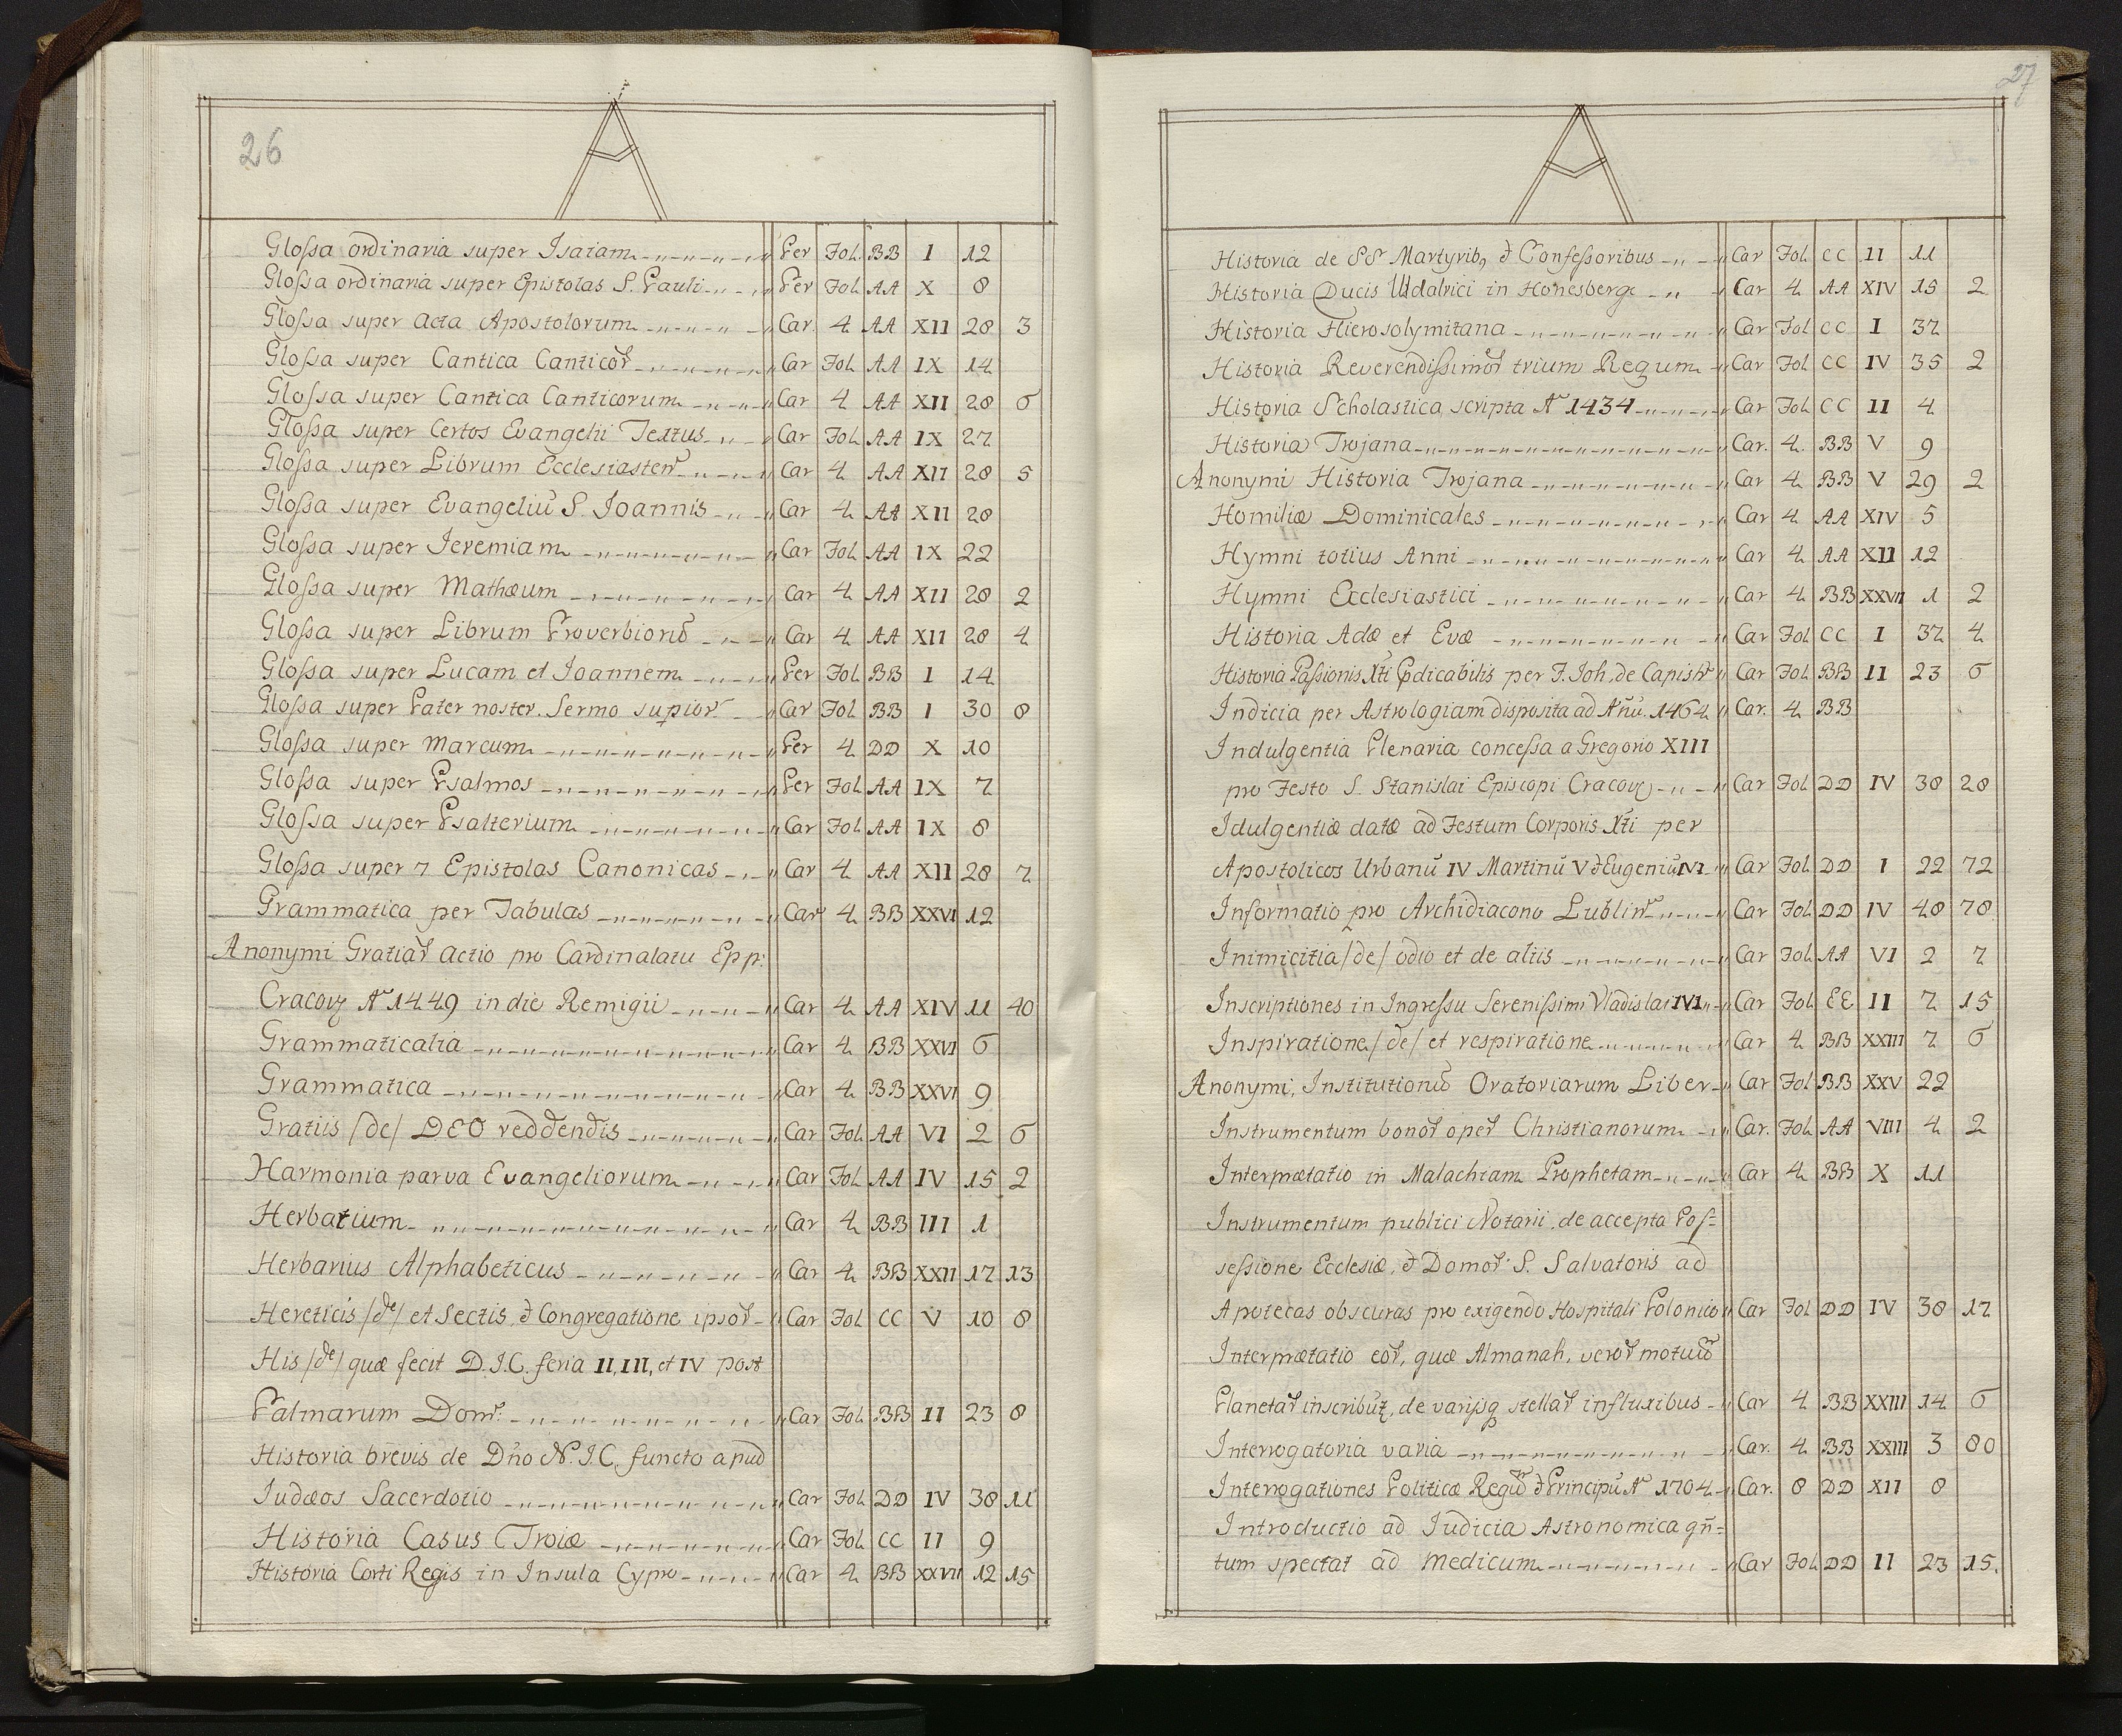 26
A
Glossa ordinaria super Isaiam Per Fol. BB I 12
Glossa ordinaria super Epistolas S. Pauli Per Fol. AA X 8
Glossa super Acta Apostolorum Car. 4. AA XII 28 3
Glossa super Cantica Canticor Car Fol. AA IX 14
Glossa super Cantica Canticorum Car 4. AA XII 28 6
Glossa super Certos Evangelii Textus Car Fol. AA IX 27
Glossa super Librum Ecclesiasten Car 4. AA XII 28 5
Glossa super Evangeliū S. Joannis Car 4. AA XII 28
Glossa super Jeremiam Car Fol. AA IX 22
Glossa super Mathæum Car 4. AA XII 28 2
Glossa super Librum Proverbiorū Car 4. AA XII 28 4
Glossa super Lucam et Joannem Per Fol. BB I 14
Glossa super Pater noster. Sermo supior Car Fol. BB I 30 8
Glossa super Marcum Per 4. DD X 10
Glossa super Psalmos Per Fol. AA IX 7
Glossa super Psalterium Car Fol. AA IX 8
Glossa super 7 Epistolas Canonicas Car 4. AA XII 28 7
Grammatica per Tabulas Car 4. BB XXVI 12
Anonymi Gratiar Actio pro Cardinalatu Epp:
Cracov Ao 1449 in die Remigii Car 4. AA XIV 11 40
Grammaticalia Car 4. BB XXVI 6
Grammatica Car 4. BB XXVI 9
Gratiis /de/ DEO reddendis Car Fol. AA VI 2 6
Harmonia parva Evangeliorum Car Fol. AA IV 15 2
Herbarium Car 4. BB III 1
Herbarius Alphabeticus Car 4. BB XXII 17 13
Hereticis /de/ et Sectis, & Congregatione ipsor Car Fol. CC V 10 8
His /de/ quæ fecit D. J. C. feria II, III, et IV post
Palmarum Dom. Car Fol. BB II 23 8
Historia brevis de Dno N. J. C. functo apud
Judæos Sacerdotio Car Fol. DD IV 38 11
Historia Casus Troiæ Car Fol. CC II 9
Historia Corti Regis in Insula Cypro Car 4. BB XXVII 12 15
27
A
Historia de SS Martyrib, & Confessoribus Car Fol. CC II 11
Historia Ducis Udalrici in Honesberge Car 4. AA XIV 15 2
Historia Hierosolymitana Car Fol CC I 37
Historia Reverendissimor trium Regum Car Fol CC IV 35 2
Historia Scholastica scripta Ao 1434 Car Fol. CC II 4
Historia Trojana Car. 4. BB V 9
Anonymi Historia Trojana Car 4. BB V 29 2
Homiliæ Dominicales Car 4 AA XIV 5
Hymni totius Anni Car 4. AA XII 12
Hymni Ecclesiastici Car 4. BB XXVII 1 2
Historia Adæ et Evæ Car Fol CC I 37 4
Historia Passionis Xti Pdicabilis per F. Joh. de Capistr Car Fol. BB II 23 6
Indicia per Astrologiam disposita ad Anū. 1464 Car. 4. BB
Indulgentia Plenaria concessa a Gregorio XIII
pro Festo S. Stanislai Episcopi Cracov Car Fol DD IV 38 28
Idulgentiæ datæ ad Festum Corporis Xti per
Apostolicos Urbanū IV Martinū V & Eugeniū IV Car Fol. DD I 22 72
Informatio pro Archidiacono Lublin Car Fol. DD IV 48 78
Inimicitia /de/ odio et de aliis Car Fol. AA VI 2 7
Inscriptiones in Ingressu Serenissimi Vladislai IVi Car Fol EE II 7 15
Inspiratione /de/ et respiratione Car 4. BB XXIII 7 6
Anonymi, Institutionū Oratoriarum Liber Car Fol BB XXV 22
Instrumentum bonor oper Christianorum Car. Fol. AA VIII 4 2
Interprætatio in Malachiam Prophetam Car 4. BB X 11
Instrumentum publici Notarii, de accepta Pos=
sessione Ecclesiæ, & Domor S. Salvatoris ad
Apotecas obscuras pro exigendo Hospitali Polonico Car Fol DD IV 38 17
Interprætatio eor, quæ Almanah, veror motuū
Planetar inscribut, de varijsq stellar influxibus Car 4. BB XXIII 14 6
Interrogatoria varia Car. 4. BB XXIII 3 80
Interrogationes Politicæ Regū & Principū Ao 1704 Car. 8 DD XII 8
Introductio ad Judicia Astronomica qn=
tum spectat ad Medicum Car Fol. DD II 23 15.